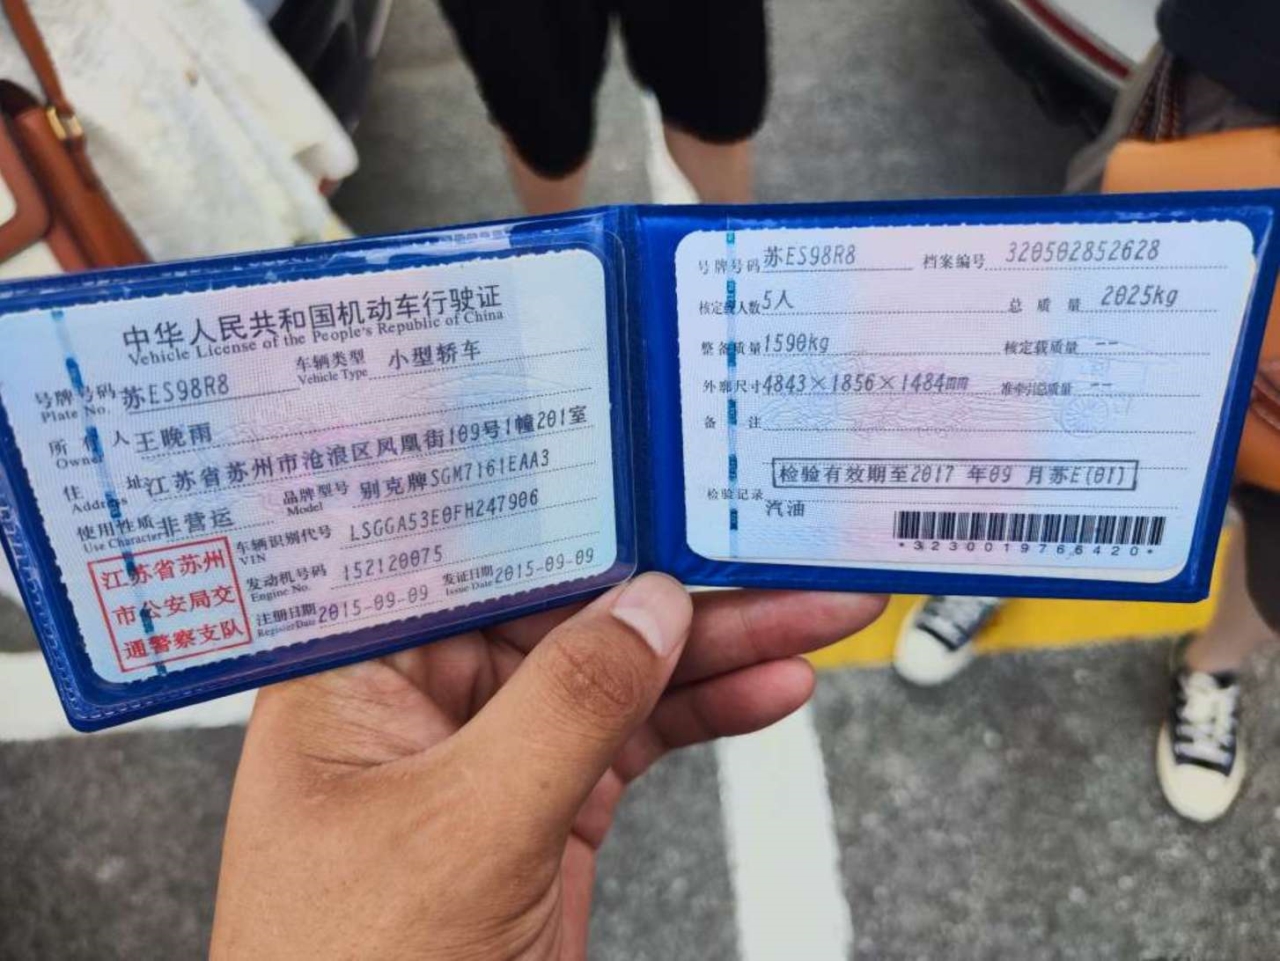 中华人民共和国机动车行驶证
Vehicle License of the People's Republic of China
号牌号码 苏ES98R8 车辆类型 小型轿车
Plate No. Vehicle Type
所有人 王晚雨
Owner
住址 江苏省苏州市沧浪区凤凰街109号1幢201室
Address
使用性质 非营运 品牌型号 别克牌SGM7161EAA3
Use Character Model
江苏省苏州
市公安局交
通警察支队
车辆识别代号 LSGGA53E0FH247906
VIN
发动机号码 152120075
Engine No.
注册日期 2015-09-09 发证日期 2015-09-09
Register Date Issue Date
号牌号码 苏ES98R8 档案编号 320502852628
核定载人数 5人 总质量 2025kg
整备质量 1590kg 核定载质量 --
外廓尺寸 4843×1856×1484mm 准牵引总质量 --
备注
检验有效期至2017年09月苏E(01)
检验记录
汽油
*3230019766420*